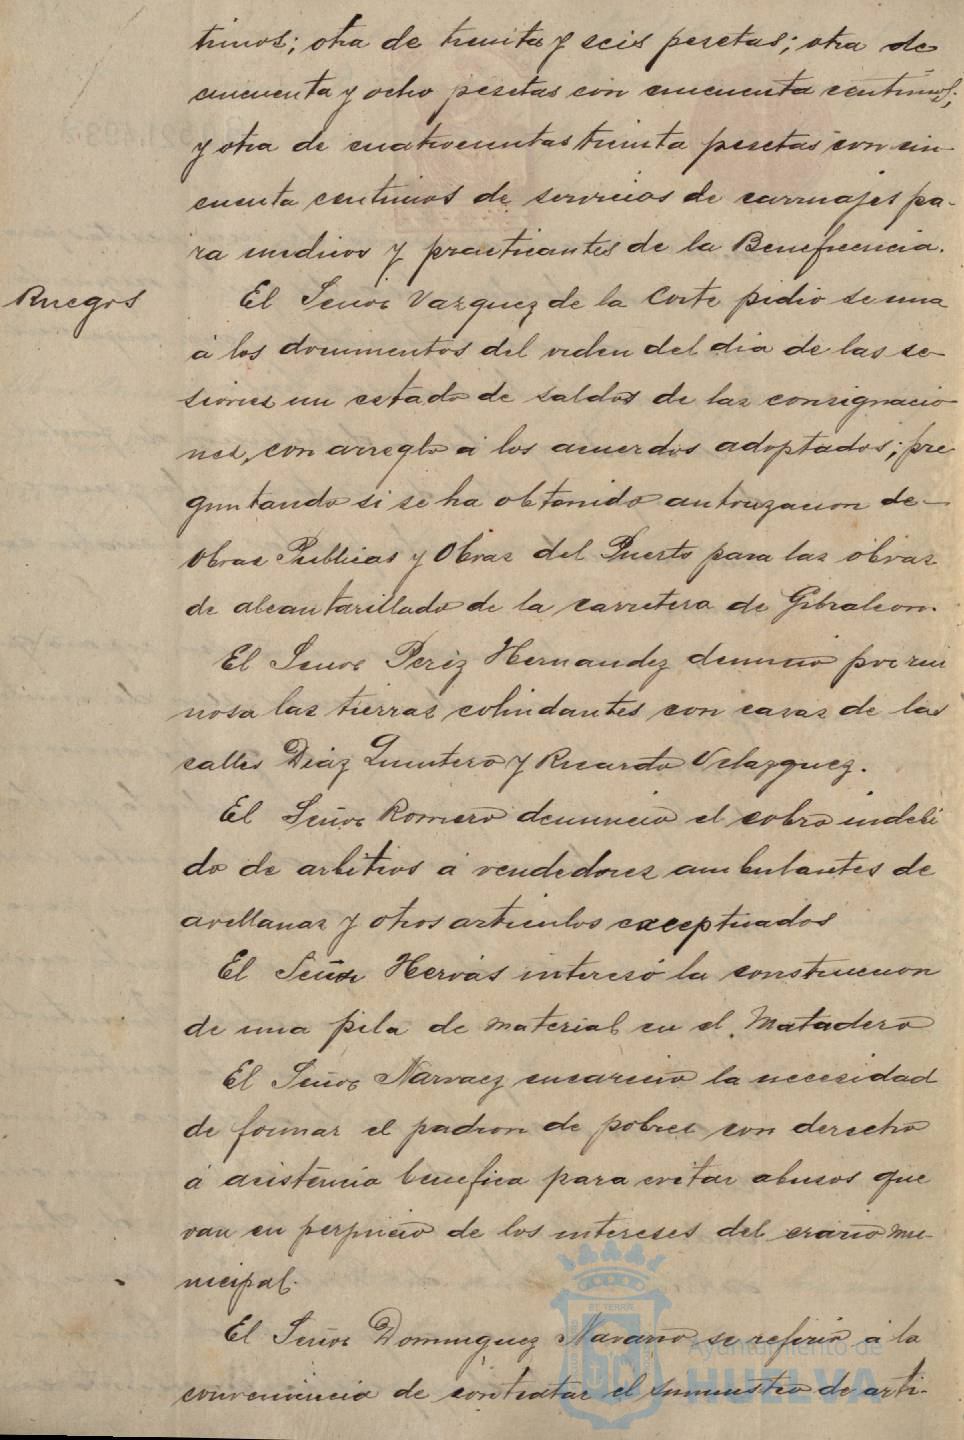 timos; otra de treinta y seis pesetas; otra de
cincuenta y ocho pesetas con cincuenta centimos;
y otra de cuatrocientas treinta pesetas con cin-
cuenta centimos de servicios de carruajes pa-
ra medicos y practicantes de la Beneficencia.
Ruegos
El Señor Vazquez de la Corte pidió se una
á los documentos del orden del dia de las se-
siones un estado de saldos de las consignacio
nes, con arreglo á los acuerdos adoptados; pre
guntando si se ha obtenido autorizacion de
Obras Publicas y Obras del Puerto para las obras
de alcantarillado de la carretera de Gibraleon.
El Señor Perez Hernandez denunció por rui
nosa las tierras colindantes con casas de las
calles Diaz Quintero y Ricardo Velazquez.
El Señor Romero denunció el cobro indebi
do de arbitrios á vendedores ambulantes de
avellanas y otros articulos exceptuados
El Señor Hervás interesó la construccion
de una pila de material en el Matadero
El Señor Narvaez encareció la necesidad
de formar el padron de pobres con derecho
á asistencia benefica para evitar abusos que
van en perjuicio de los intereses del erario mu-
nicipal.
El Señor Dominguez Navarro se referió á la
conveniencia de contratar el suministro de arti-
Ayuntamiento de
HUELVA